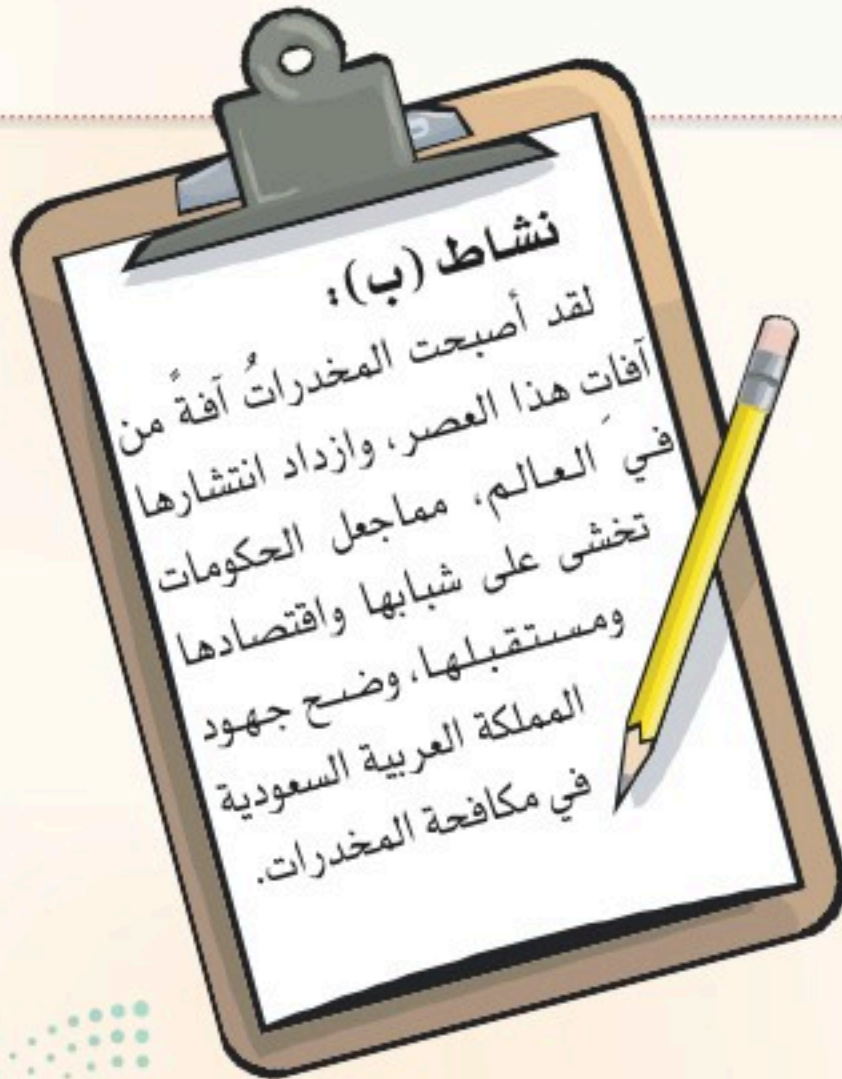 نشاط (ب):
لقد أصبحت المخدراتُ آفةً من
آفات هذا العصر، وازداد انتشارها
في العالم، مماجعل الحكومات
تخشى على شبابها واقتصادها
ومستقبلها، وضح جهود
المملكة العربية السعودية
في مكافحة المخدرات.